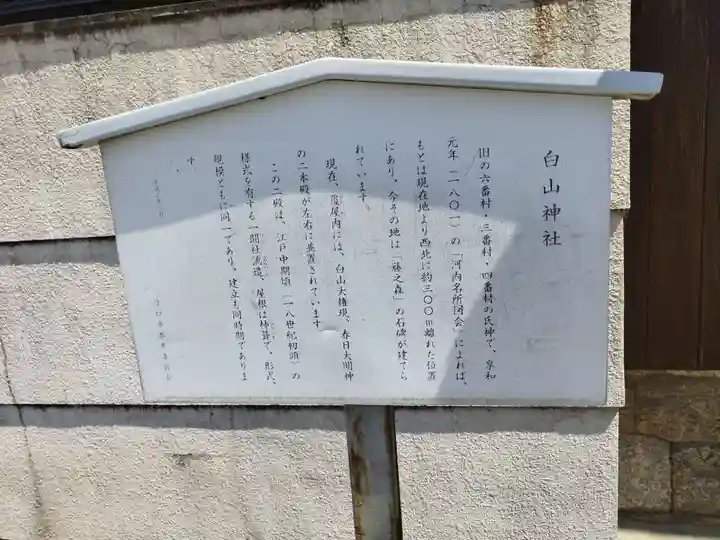 白山神社
旧の六番村・三番村・四番村の氏神で、享和
元年(一八〇一)の「河内名所図会」によれば、
もとは現在地より西北に約三〇〇m離れた位置
にあり、今その地は「藤之森」の石碑が建てら
れています。
現在、覆屋内には、白山大権現、春日大明神
の二本殿が左右に並置されています。
この二殿は、江戸中期頃(一八世紀初頭)の
様式を有する一間社流造、屋根は杮葺で、形式、
規模ともに同一であり、建立も同時期でありま
す。
守口市教育委員会